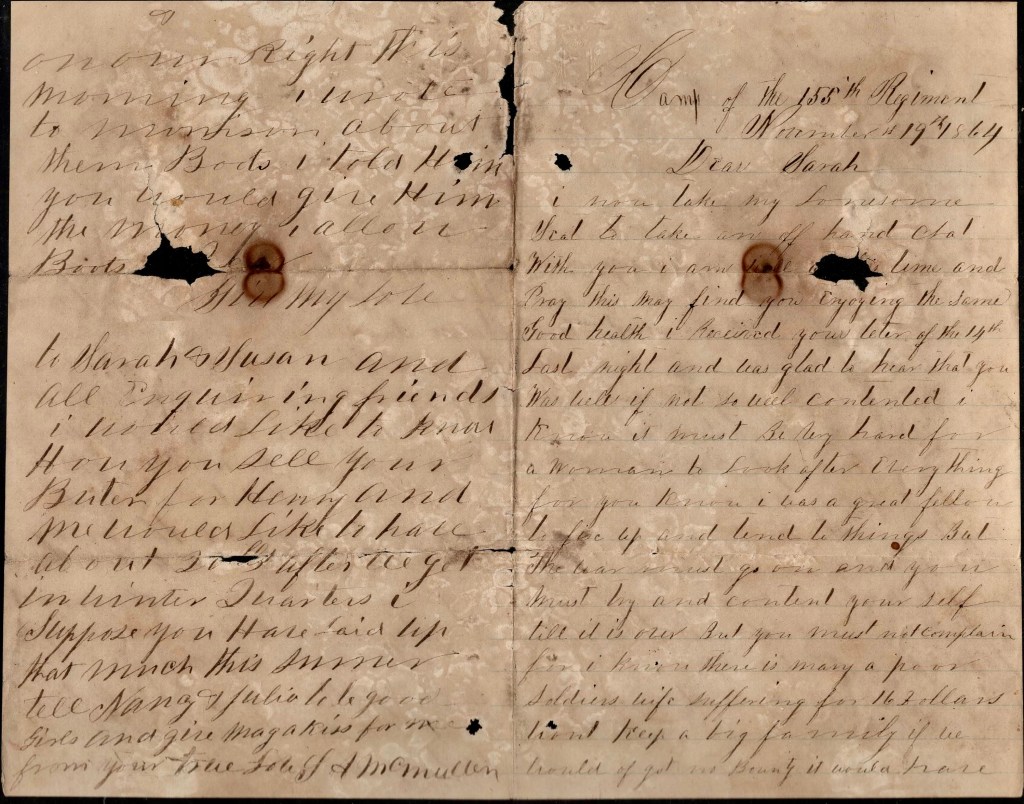 Camp of the 155th Regiment
November 19th 1864
Dear Sarah
i now take my Lonesome
Seat to take an off hand chat
With you i am time and
Pray this may find you Enjoying the same
Good health i Received your leter of the 14th
Last night and was glad to hear that you
Was well if not so well contented i
Know it must Be very hard for
a Woman to Look after Everything
for you Know i was a great fellow
to fix up and tend to things But
The war must go on and you
Must try and content your self
till it is over But you must not complain
for i know there is many a poor
Soldiers wife suffering for 16 Dollars
wont Keep a big family if we
would of got no Bounty it would have
on our Right this
morning i wrote
to Morrison about
them Boots i told Him
you would give Him
the money
Boots
Give My Love
to Sarah & Susan and
all Enquiring friends
i would Like to know
How you sell your
Buter for Henry and
Me would Like to have
about 20 after we get
in winter Quarters i
Suppose you Have laid up
that much this sumer
tell Nancy & Julia to be good
Girls and give mag a kiss for me
from your true Love S A McMullen